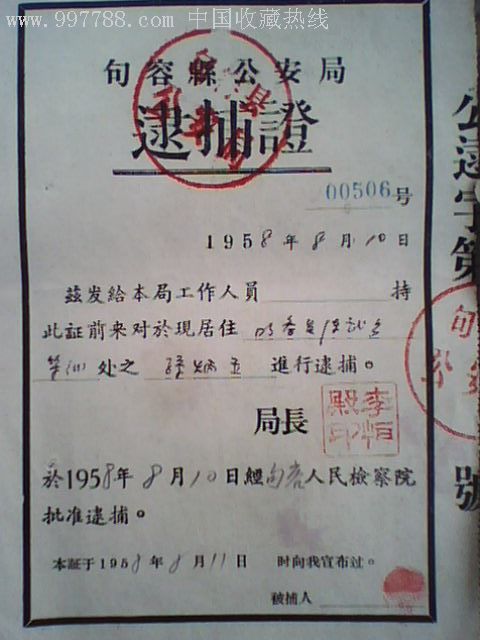 www.997788.com 中国收藏热线
句容縣公安局
逮捕證
00506号
1958年8月10日
茲发給本局工作人員 持
此証前来对於現居住
处之 進行逮捕。
局長
於1958年8月10日經句容人民檢察院
批准逮捕。
本証于1958年8月11日 时向我宣布过。
被捕人
公逮字第
號